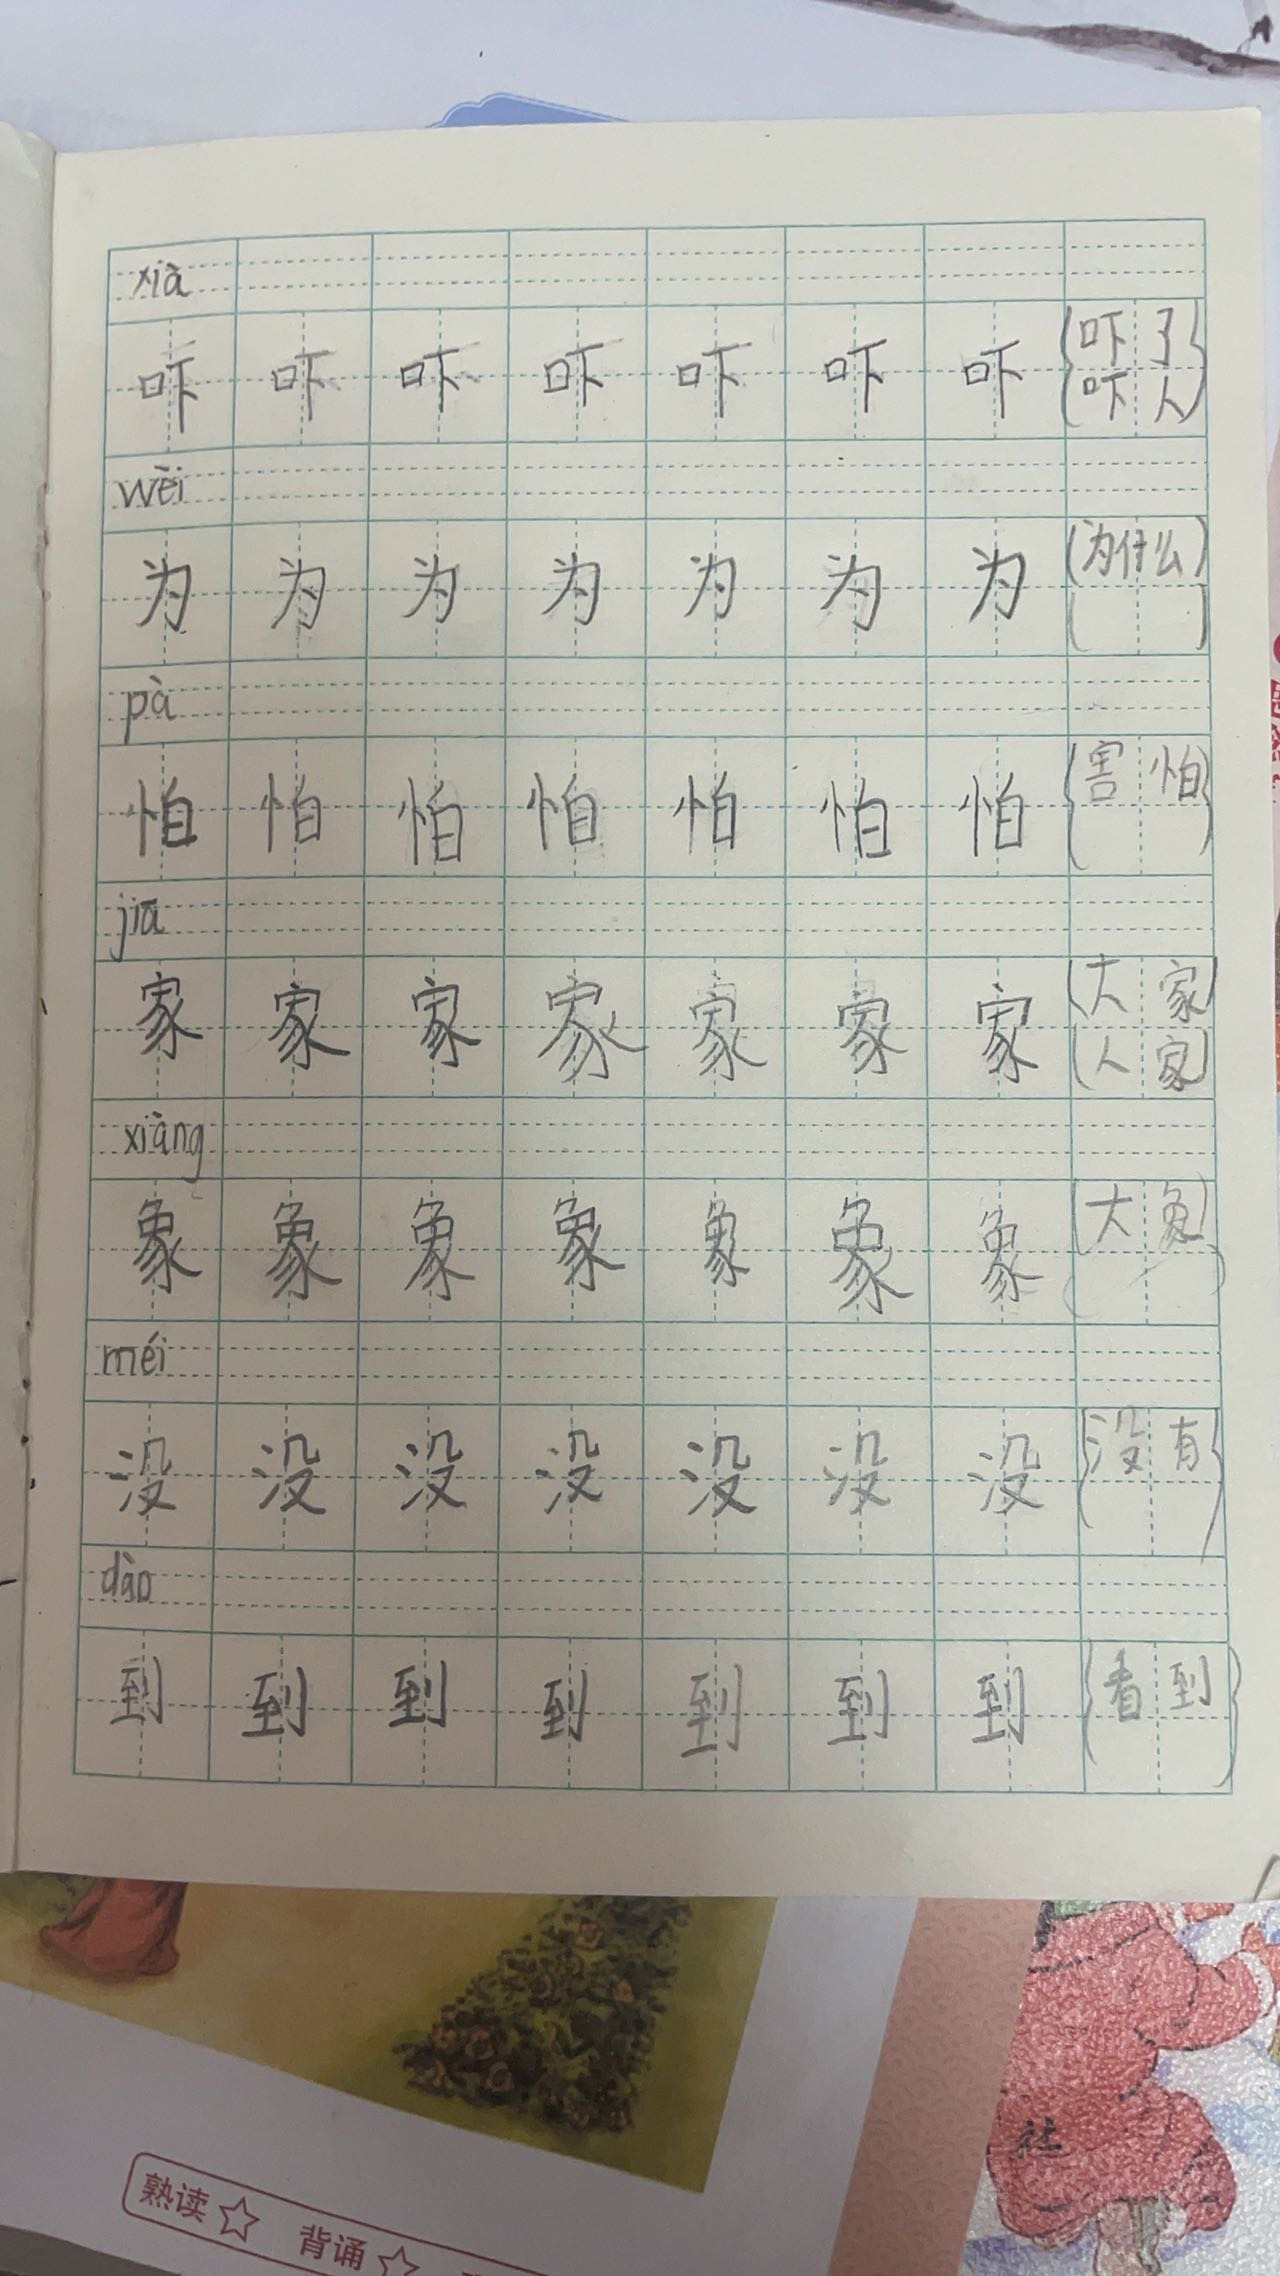 xià
吓 吓 吓 吓 吓 吓 吓 (吓了)
(吓人)
wèi
为 为 为 为 为 为 为 (为什么)
( )
pà
怕 怕 怕 怕 怕 怕 怕 (害怕)
jiā
家 家 家 家 家 家 家 (大家)
(人家)
xiàng
象 象 象 象 象 象 象 (大象)
( )
méi
没 没 没 没 没 没 没 (没有)
dào
到 到 到 到 到 到 到 (看到)
社
熟读☆ 背诵☆